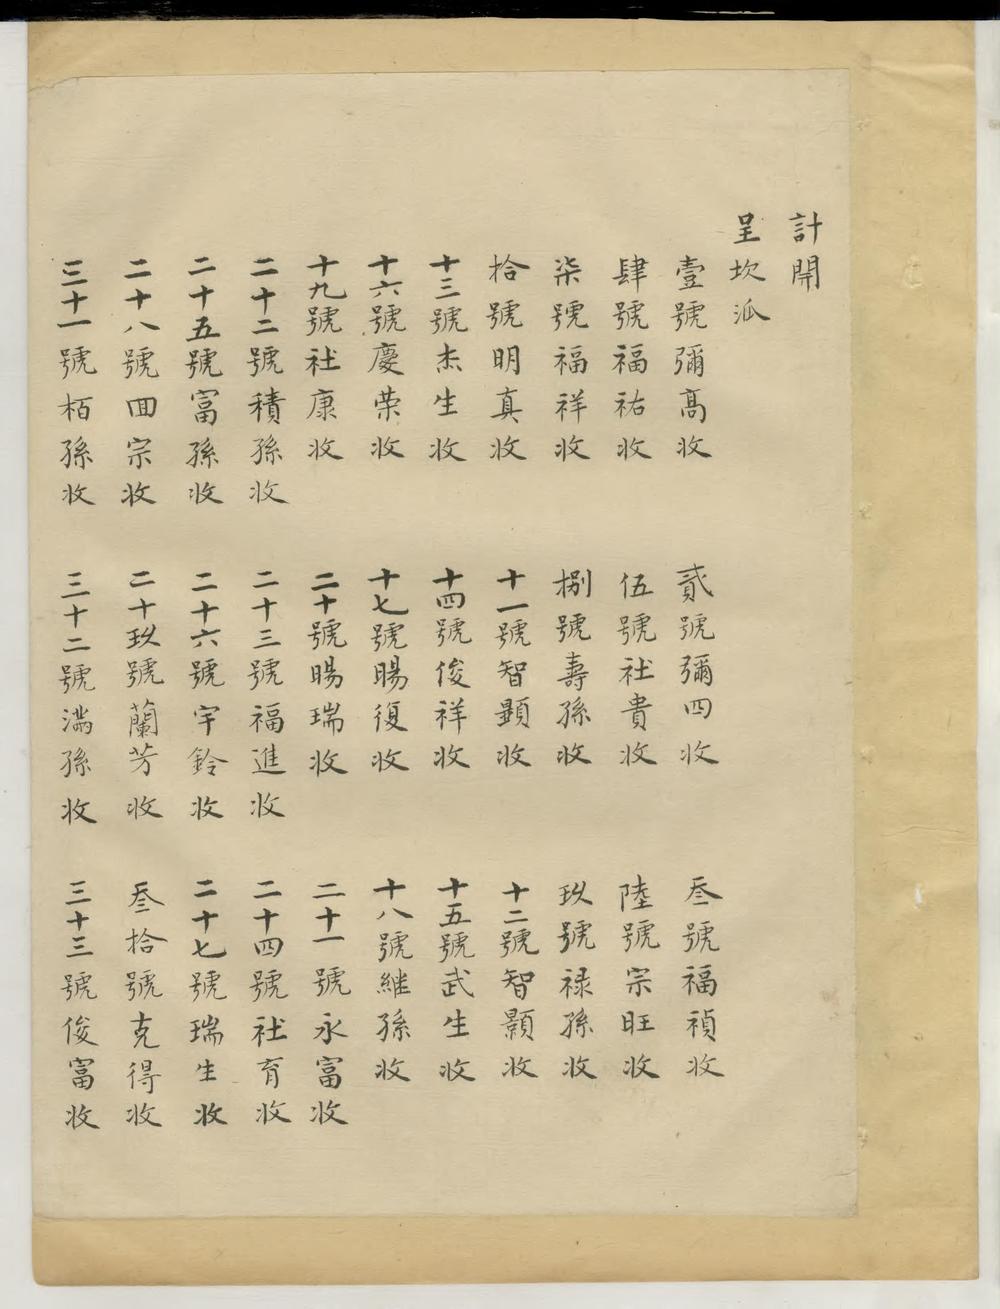 計開
呈坎派
壹號彌高收
貳號彌四收
叁號福禎收
肆號福祐收
伍號社貴收
陸號宗旺收
柒號福祥收
捌號壽孫收
玖號禄孫收
拾號明真收
十一號智顯收
十二號智顥收
十三號杰生收
十四號俊祥收
十五號武生收
十六號慶荣收
十七號賜復收
十八號継孫收
十九號社康收
二十號賜瑞收
二十一號永富收
二十二號積孫收
二十三號福進收
二十四號社育收
二十五號富孫收
二十六號宇鈴收
二十七號瑞生收
二十八號回宗收
二十玖號蘭芳收
叁拾號克得收
三十一號栢孫收
三十二號滿孫收
三十三號俊富收